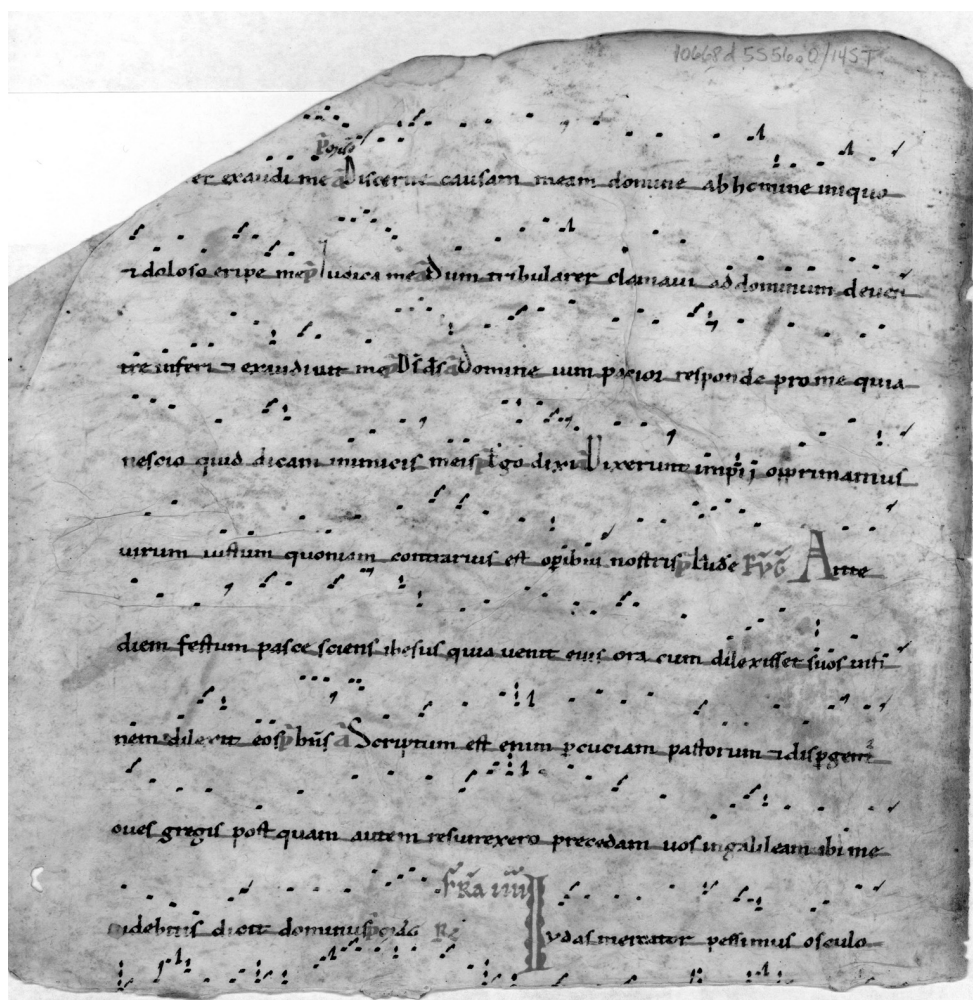 10668d 5S56.0/14ST
er exaudi me Discerne causam meam domine ab homine iniquo
⁊ doloso eripe me p̄ Iudica me a Dum tribularer clamaui ad dominum deuen
tre inferi ⁊ exaudiuit me Domine uim pacior responde pro me quia
nescio quid dicam inimicis meis Ego dixi Dixerunt impii opprimamus
uirum iustum quoniam contrarius est opibus nostris Ante
diem festum pasce sciens ihesus quia uenit eius ora cum dilexisset suos infi
nem dilexit eos Scriptum est enim pcuciam pastorum ⁊ dispgent
oues gregis post quam autem resurexero precedam uos in galileam ibi me
uidebitis dicit dominus
Fr̄a iiii
Iudas mercator pessimus osculo